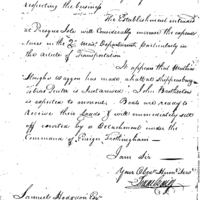 respecting the business
The Establishment intended
at Presque Isle will Considerably increase the expendi
tures in the Qr. Mas. Department, particularly in
the Article of Transportation.
It appears that Mathias
Slough's Waggon has made what at Shippensburg
is Instanced John Brotherton
is expected to morrow. Boats are ready to
Receive their Loads & will immediately sett
off escorted by a Detachment under the
Command of Ensign Frothingham —
I am Sir
Your Obedt. Humb. Servt.
Isaac Craig
Samuel Hodgdon Esqr